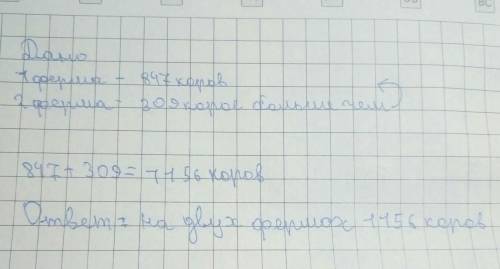 Дано
1 ферма - 847 коров
2 ферма - 309 коров больше чем
847 + 309 = 1156 коров
Ответ: на двух фермах 1156 коров